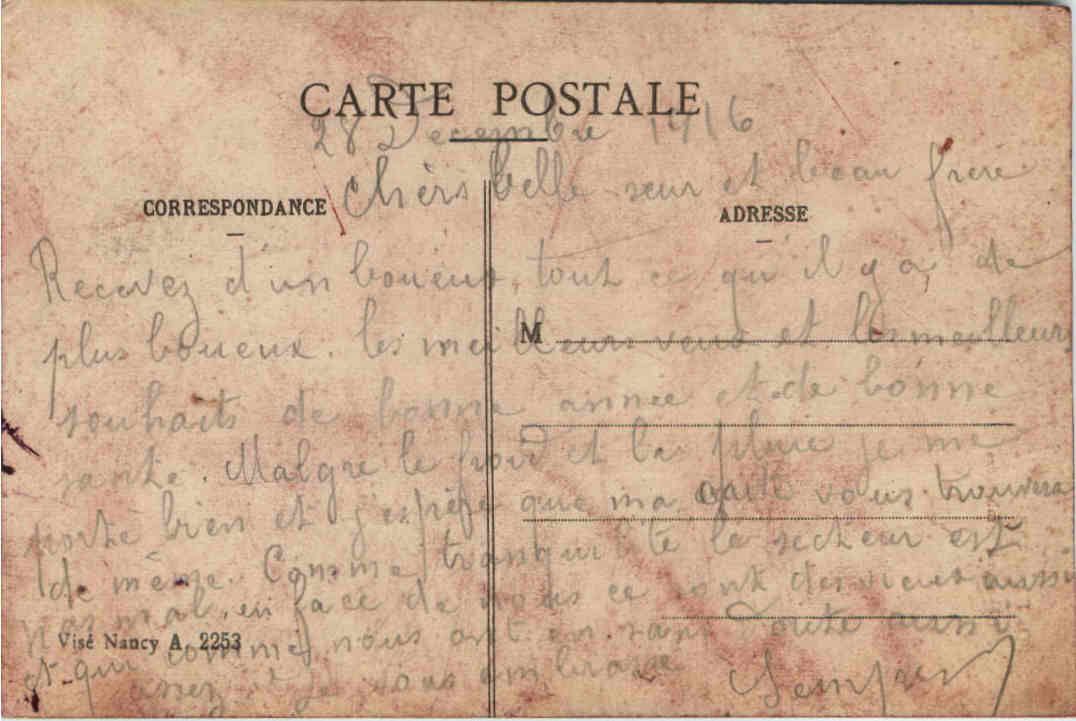 CARTE POSTALE
28 Decembre 1916
Chèrs belle seur et beau frère
CORRESPONDANCE
ADRESSE
Recevez d'un boueux, tout ce qu'il y a, de
plus boueux. les meilleurs veux et les meilleurs
M
souhaits de bonne année et de bonne
sante. Malgre le froid et la pluie je me
porte bien et j'espère que ma carte vous trouvera
de même. Comme tranquilité le secteur est
pas mal, en face de nous ce sont des vieux aussi
Visé Nancy A. 2253
et qui comme nous ont en sans doute aussi
assez je vous embrasse